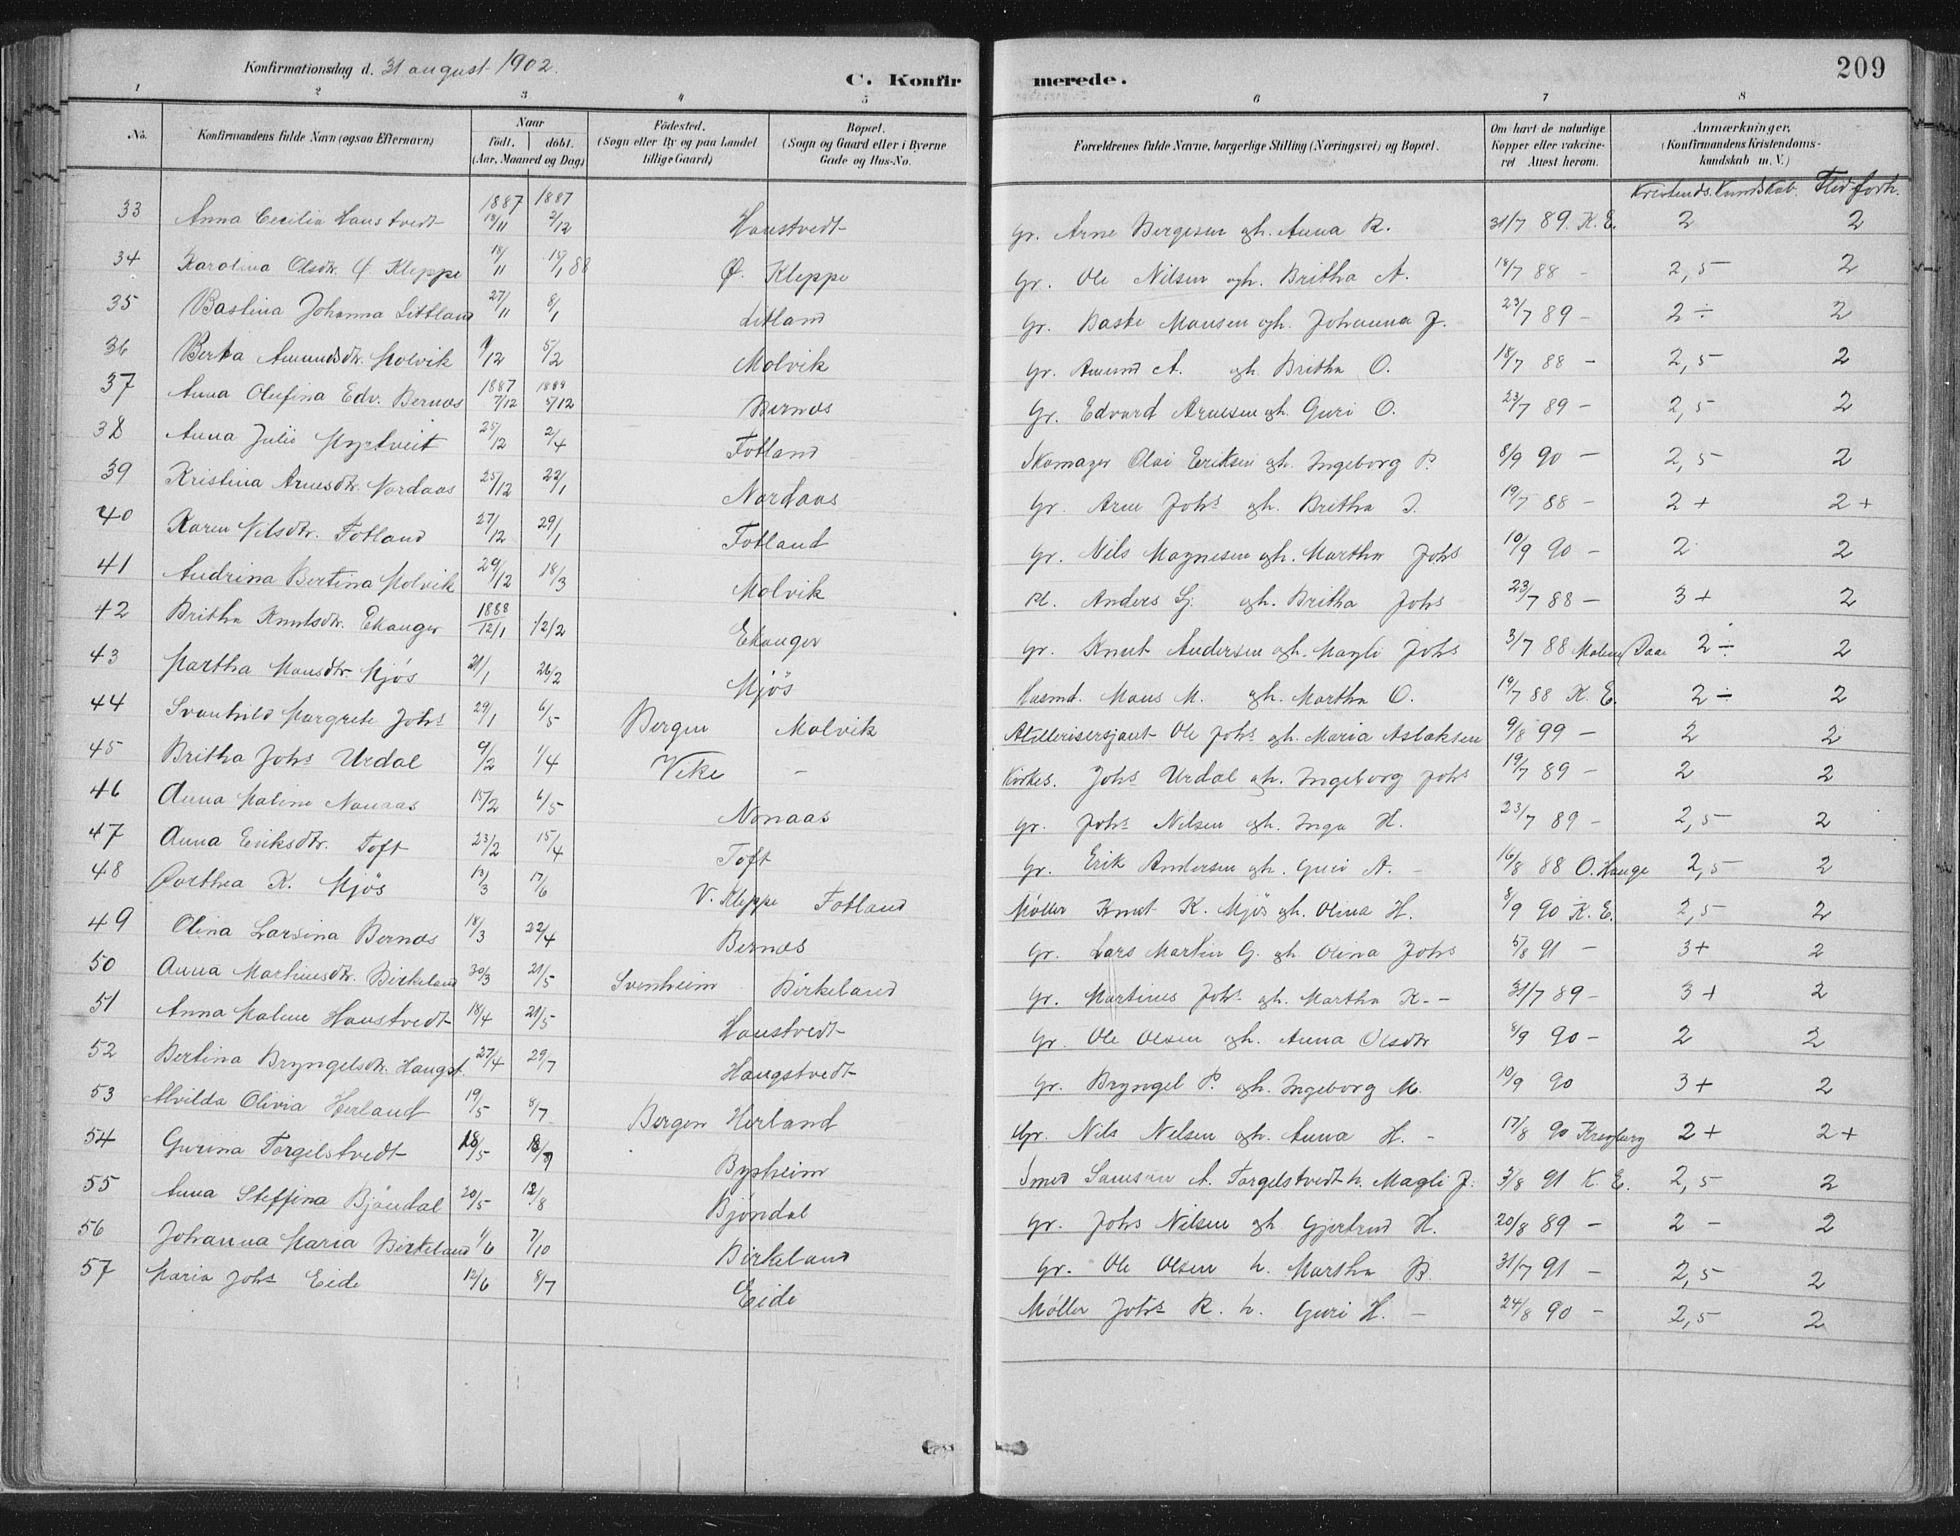 209
Konfirmationsdag d. 31 august 1902.
C. Konfirmerede.
1 2 3 4 5 6 7 8
No. Konfirmandens fulde Navn (ogsaa Efternavn) Naar født, døbt. (Aar, Maaned og Dag) Fødested. (Sogn eller By og paa Landet tillige Gaard) Bopæl. (Sogn og Gaard eller i Byerne Gade og Hus-No. Forældrenes fulde Navne, borgerlige Stilling (Næringsvei) og Bopæl. Om havt de naturlige Kopper eller vakcineret Attest herom. Anmærkninger, (Konfirmandens Kristendomskundskab m. V.)
Kristends. Kundskab. Flid forh.
33 Anna Cecilia Haustvedt 1887 13/11 1887 2/12 Haustvedt Gr. Arne Bergesen gh. Anna R. 31/7 89. K. E. 2 2
34 Karolina Olsdtr. Ø. Kleppe 18/11 88 Ø. Kleppe Gr. Ole Nilsen gh. Britha A. 18/7 88 - 2,5 2
35 Bastina Johanna Littland 27/11 8/1 Litland Gr. Baste Monsen gh. Johanna J. 23/7 89 - 2 ÷ 2
36 Berta Amundsdtr. Molvik 9/12 5/2 Molvik Gr. Amund A. gh. Britha O. 18/7 88 - 2,5 2
37 Anna Olufina Edv. Bernæs 1887 7/12 1888 Bernæs Gr. Edvard Arnesen gh. Guri O. 23/7 89 - 2,5 2
38 Anna Julie Myrtveit 25/12 2/4 Fotland Skomager Olai Eriksen gh. Ingeborg P. 8/9 90 - 2,5 2
39 Kristina Arnesdtr. Nordaas 25/12 22/1 Nordaas Gr. Arne Johs gh. Britha J. 19/7 88 - 2 + 2 +
40 Karen Nilsdtr. Fotland 27/12 29/1 Fotland Gr. Nils Magnesen gh. Martha Johs 10/9 90 - 2 2
41 Andrina Bertina Molvik 29/12 18/3 Molvik Pl. Anders Lj. gh. Britha Johs 23/7 88 - 3 + 2
42 Britha Knutsdtr. Ekanger 1888 12/1 12/2 Ekanger Gr. Knut Andersen gh. Magli Johs 3/7 88 2 ÷ 2
43 Martha Monsdtr. Mjøs 21/1 26/2 Mjøs Husmd. Mons M. gh. Martha O. 19/7 88 K. E. 2 ÷ 2
44 Svanhild Margrete Johs 29/1 6/5 Bergen Molvik Ole Johs gh. Maria Aslaksen 9/8 99 - 2 2
45 Britha Johs Urdal 9/2 1/4 Vike - Kirkes. Johs Urdal gh. Ingeborg Johs 19/7 89 - 2 2
46 Anna Maline Nonaas 15/2 6/5 Nonaas Gr. Johs Nilsen gh. Inga H. 23/7 89 - 2,5 2
47 Anna Eriksdtr. Toft 23/2 15/4 Toft Gr. Erik Andersen gh. Guri A. - 16/8 88 O. Hauge 2,5 2
48 Dorthea K. Mjøs 13/3 17/6 V. Kleppe Fotland Møller Knut K. Mjøs gh. Olina H. 8/9 90 K. E. 2,5 2
49 Olina Larsina Bernæs 18/3 22/4 Bernæs Gr. Lars Martin G. gh. Olina Johs 5/8 91 - 3+ 2
50 Anna Martinusdtr. Birkeland 30/3 21/5 Svenheim Birkeland Gr. Martinus Johs gh. Martha K. - 31/7 89 - 3 + 2
51 Anna Maline Haustvedt 18/4 21/5 Haustvedt Gr. Ole Olsen gh. Anna Olsdtr 8/9 90 - 2 2
52 Bertina Bryngelsdtr. Haugst. 27/4 29/7 Haugstvedt Gr. Bryngel P. gh. Ingeborg M. 10/9 90 3+ 2
53 Alvilda Olivia Herland 19/5 8/7 Bergen Herland Gr. Nils Nilsen gh. Anna H. - 17/8 90 2+ 2+
54 Gurina Torgelstvedt 18/5 Bysheim Smed Samson A. Torgelstvedt h. Magli J. 3/8 91 K. E. 2,5 2
55 Anna Steffina Bjøndal 20/5 12/8 Bjøndal Gr. Johs Nilsen gh Gjertrud H. 20/8 89 - 2 - 2
56 Johanna Maria Birkeland 1/6 7/10 Birkeland Gr. Ole Olsen h. Martha B. 31/7 91 - 2,5 2
57 Maria Johs Eide 12/6 8/7 Eide Møller Johs R. h. Guri H. - 24/8 90 - 2,5 2